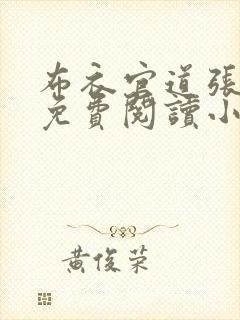 布衣官道張
免費閱讀小
黃俊榮